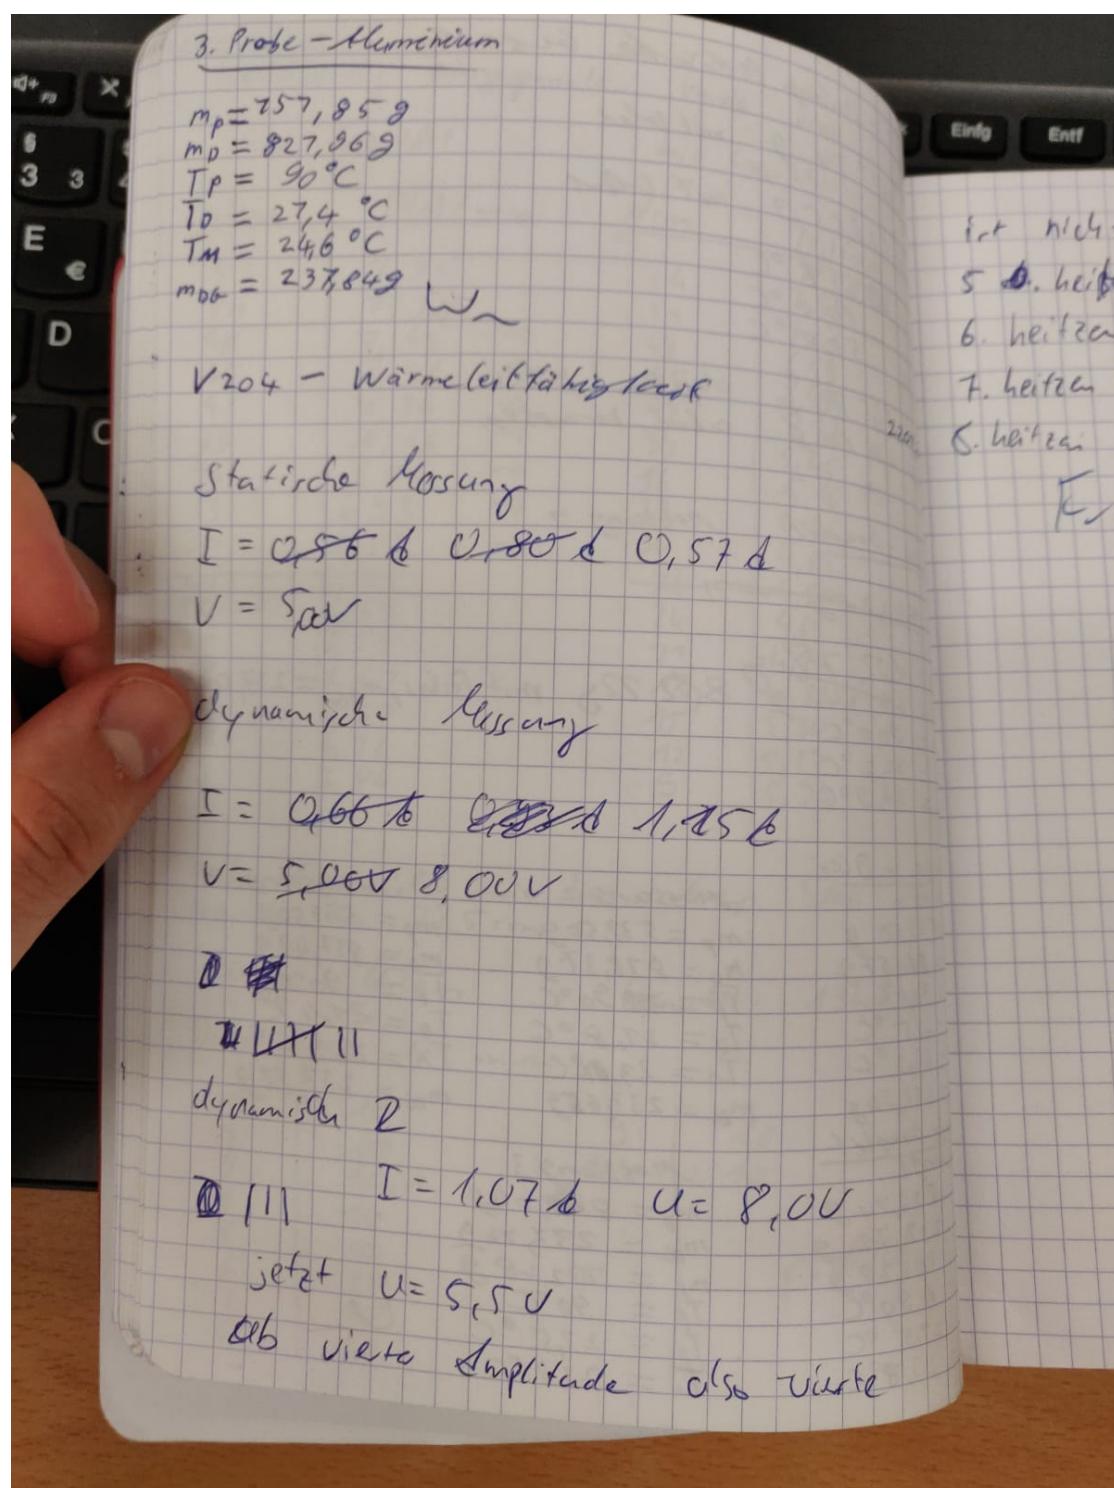 3. Probe - Aluminium
mP = 157,85 g
mD = 827,96 g
TP = 90 °C
TD = 27,4 °C
TM = 24,6 °C
mDG = 237,84 g
V204 - Wärmeleitfähigkeit
Statische Messung
I = 0,56 A 0,80 A 0,57 A
V = 5,00V
dynamische Messung
I = 0,66 A 1,15 A
V = 5,00V 8,00V
dynamisch 2
I = 1,07 A U = 8,0V
jetzt U = 5,5 V
ab vierte Amplitude also vierte
ist nich
5 . hei
6. heitzen
7. heitzen
8. heitzen
F3
X
§
3 3
E €
D
C
Einfg
Entf